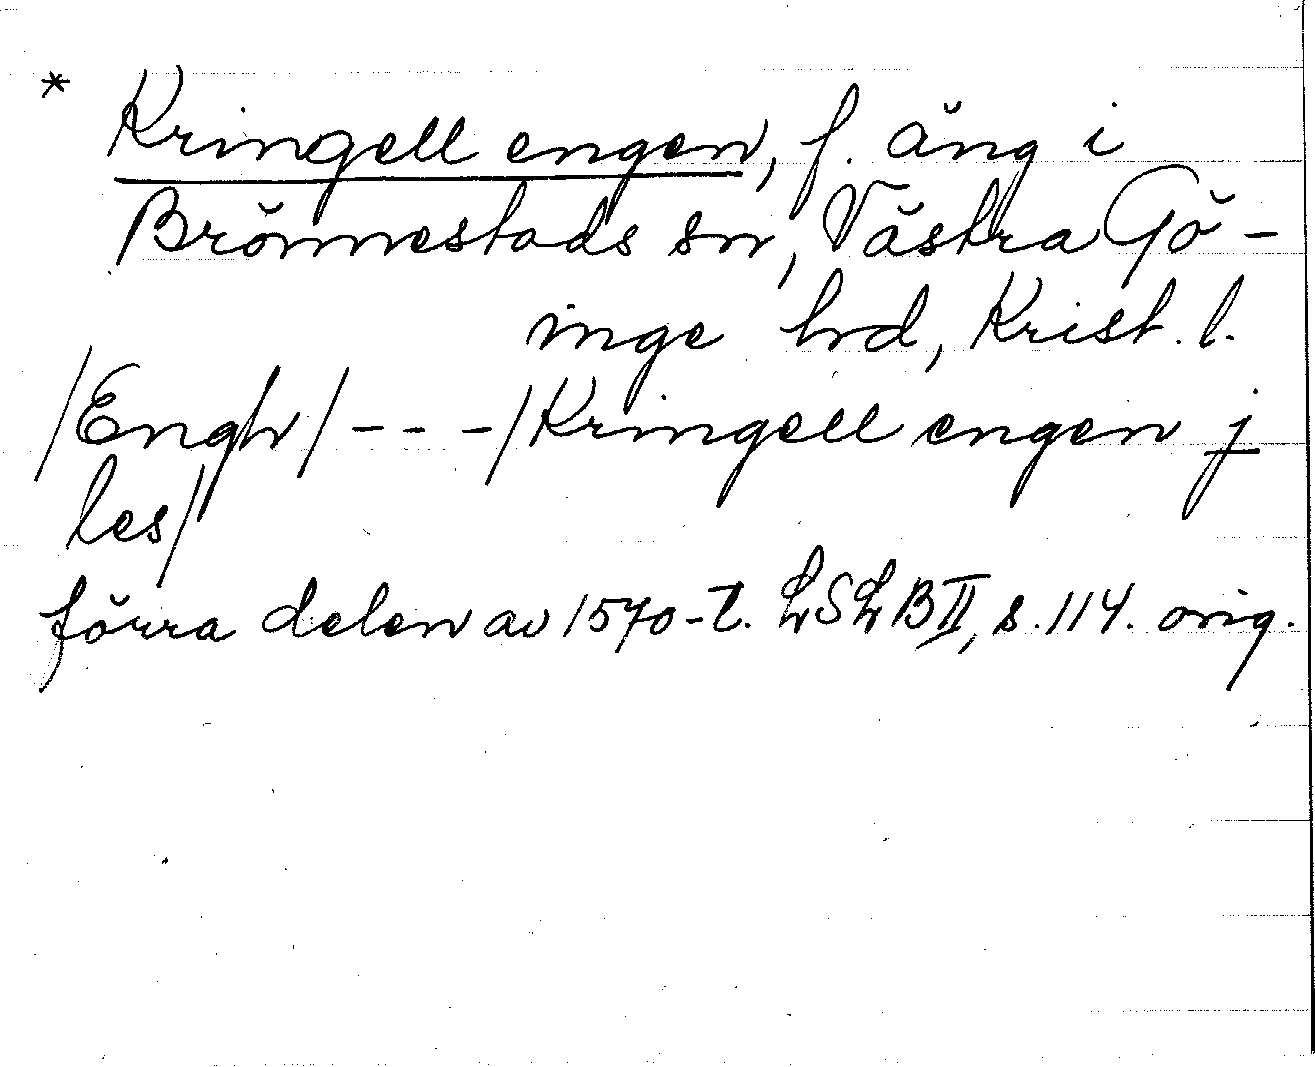 * Kringell engen, f. äng i
Brönnestads sn, Västra Gö-
inge hd, Krist. l.
/Engh/ - - - /Kringell engen j
les/
förra delen av 1570-t. LSLB II, s. 114. orig.